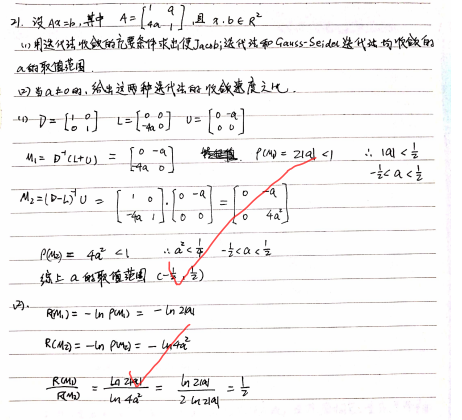 21. 设 Ax=b, 其中 A = [1 a; 4a 1], 且 x.b∈R²
(1) 用迭代法收敛的充要条件求出使 Jacobi 迭代法和 Gauss-Seidel 迭代法均收敛的
a 的取值范围.
(2) 当 a≠0 时, 给出这两种迭代法的收敛速度之比.
(1) D=[1 0; 0 1] L=[0 0; -4a 0] U=[0 -a; 0 0]
M₁ = D⁻¹(L+U) = [0 -a; -4a 0] ρ(M₁) = 2|a| < 1 ∴ |a| < 1/2
-1/2 < a < 1/2
M₂=(D-L)⁻¹U = [1 0; -4a 1]·[0 -a; 0 0] = [0 -a; 0 4a²]
ρ(M₂) = 4a² < 1 ∴ a² < 1/4 -1/2 < a < 1/2
综上 a 的取值范围 (-1/2, 1/2)
(2).
R(M₁) = -ln ρ(M₁) = -ln 2|a|
R(M₂) = -ln ρ(M₂) = -ln 4a²
R(M₁)/R(M₂) = ln 2|a| / ln 4a² = ln 2|a| / 2 ln 2|a| = 1/2